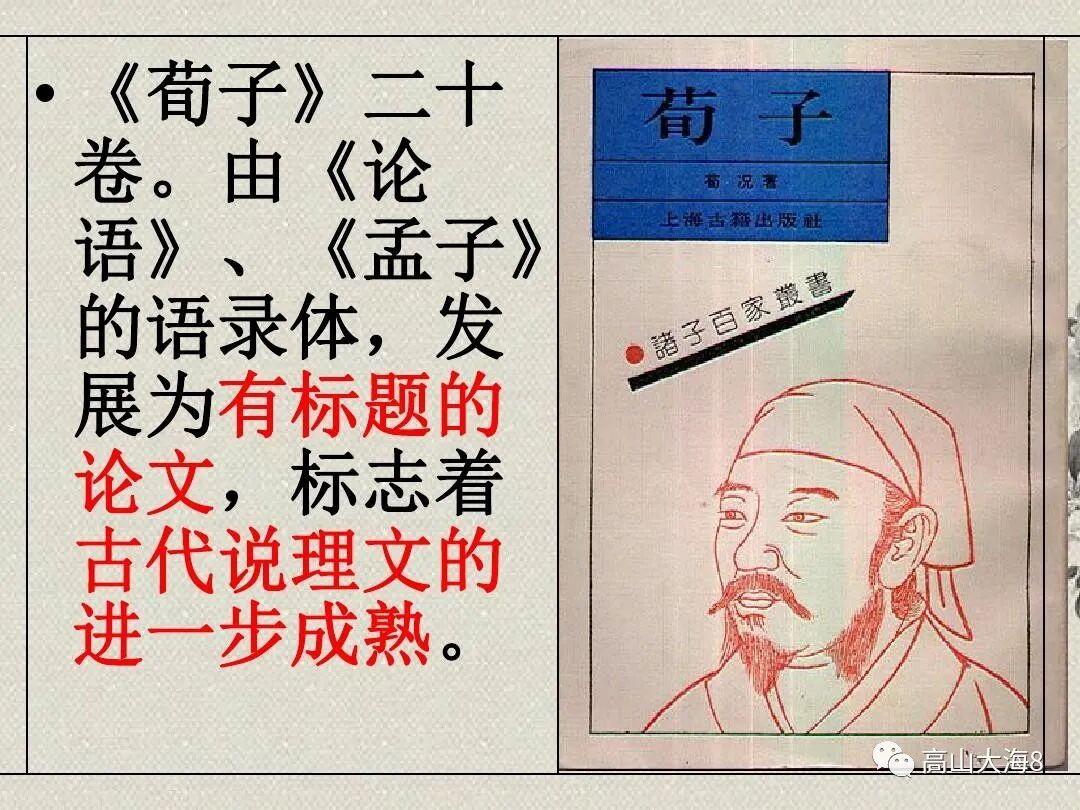 • 《荀子》二十
卷。由《论
语》、《孟子》
的语录体，发
展为有标题的
论文，标志着
古代说理文的
进一步成熟。
荀子
荀况著
上海古籍出版社
諸子百家叢書
高山大海8